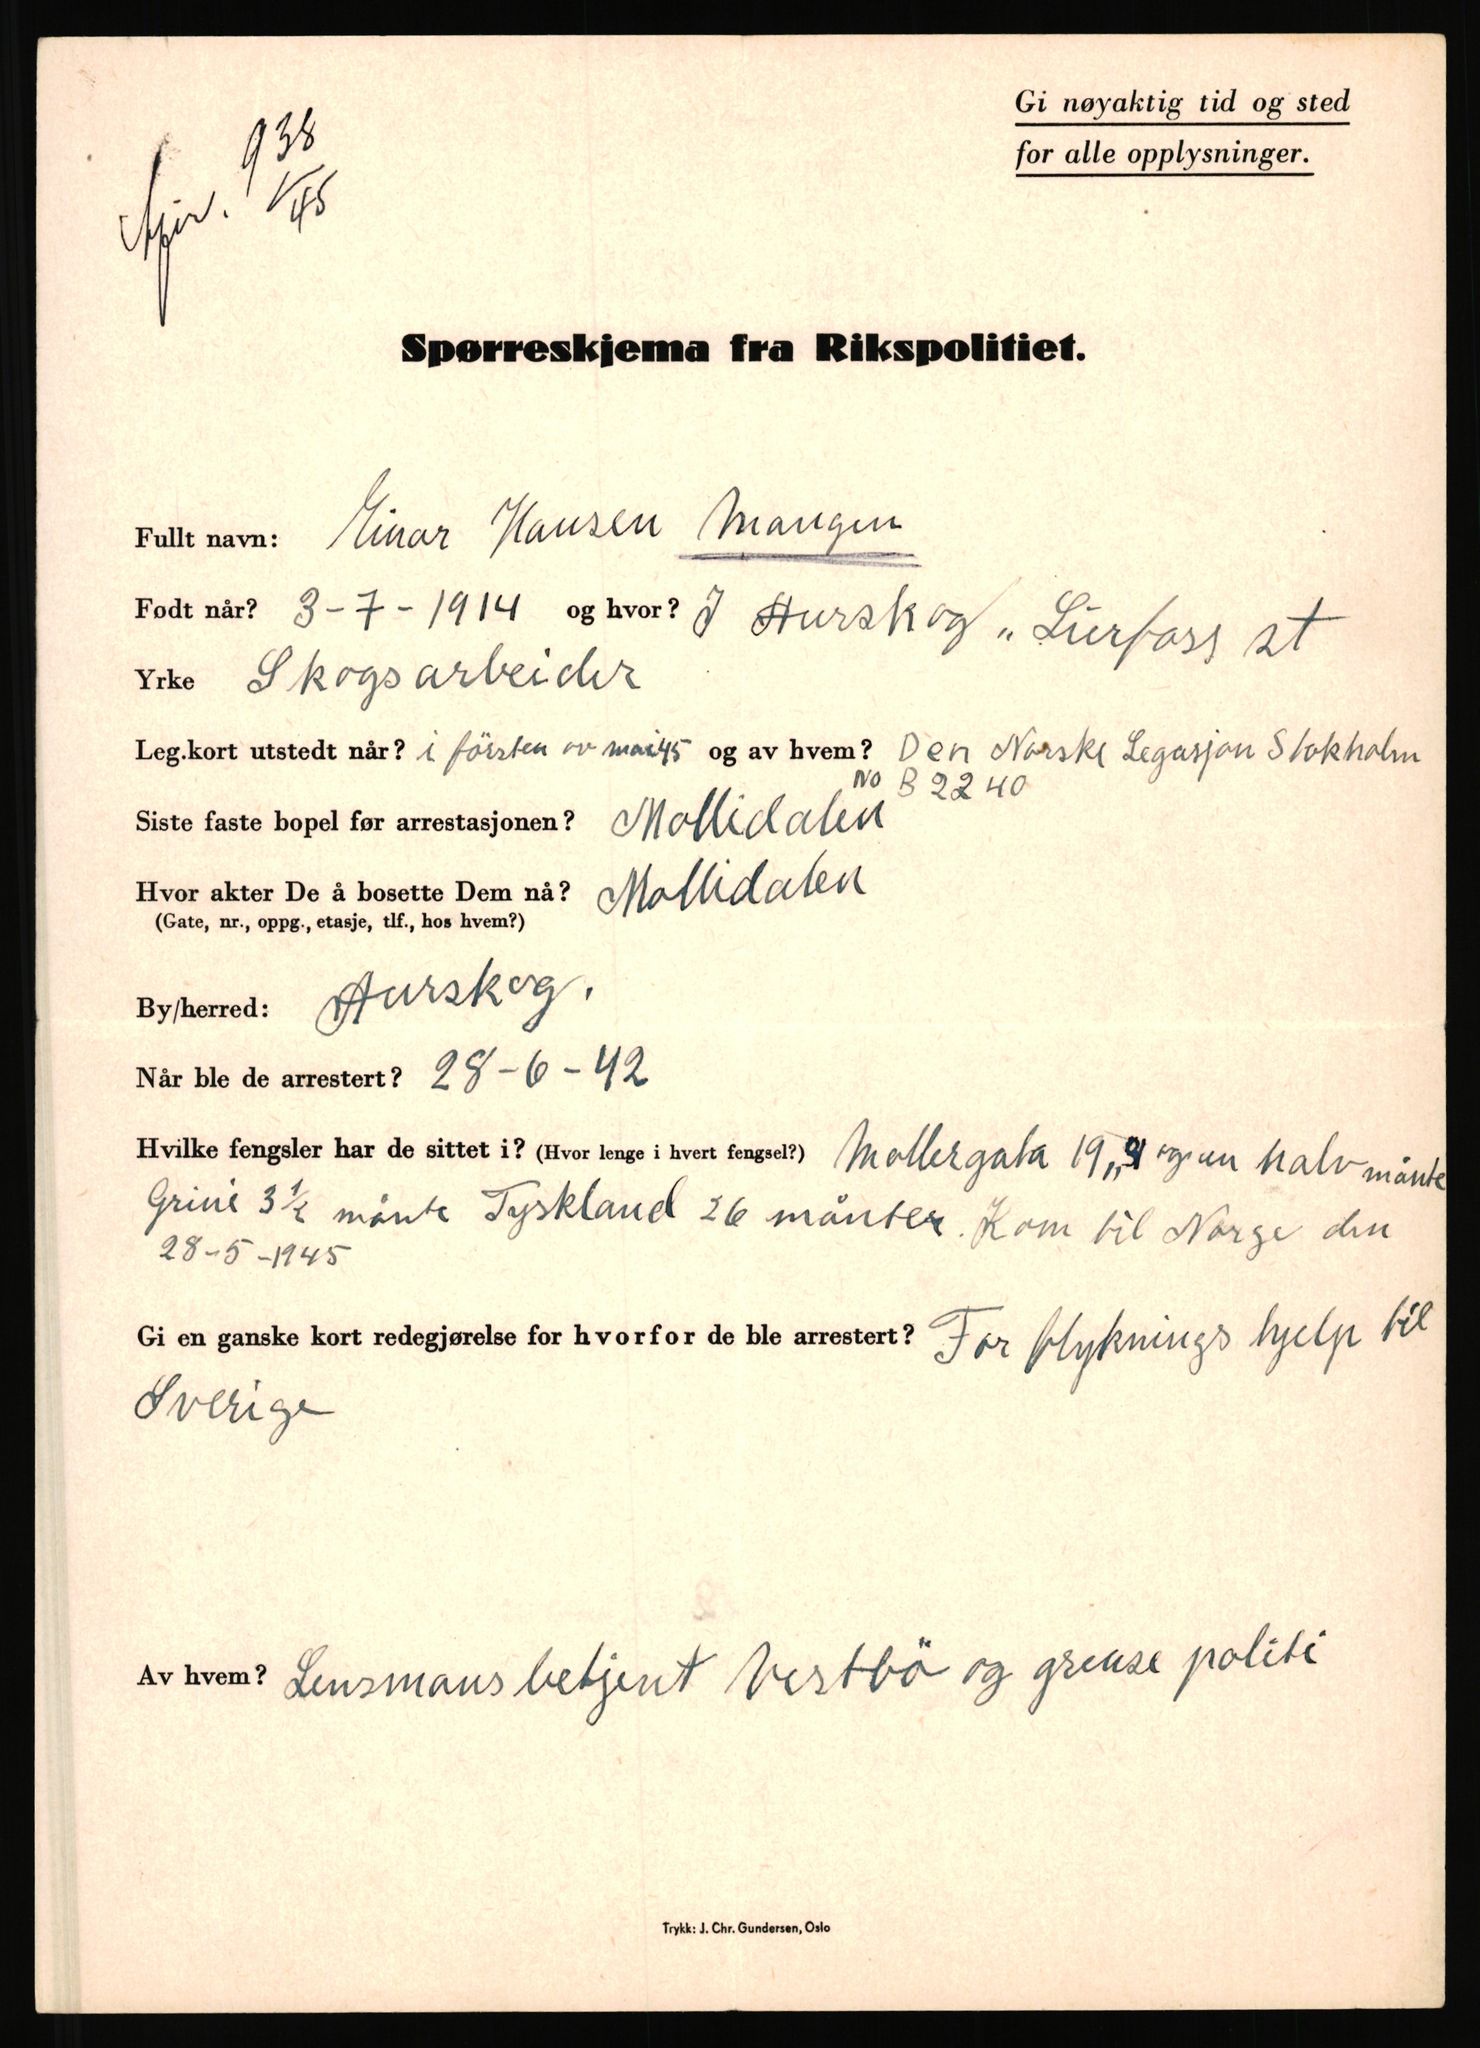 Gi nøyaktig tid og sted
for alle opplysninger.
938
/45
Spørreskjema fra Rikspolitiet.
Fullt navn: Einar Hansen Mangen
Født når? 3-7-1914 og hvor? I Aurskog „ Lierfoss st
Yrke Skogsarbeider
Leg.kort utstedt når? i försten av mai 45 og av hvem? Den Norske Legasjon Stokholm
No B 2240
Siste faste bopel før arrestasjonen? Mollidalen
Hvor akter De å bosette Dem nå? Mollidalen
(Gate, nr., oppg., etasje, tlf., hos hvem?)
By/herred: Aurskog.
Når ble de arrestert? 28-6-42
Hvilke fengsler har de sittet i? (Hvor lenge i hvert fengsel?) Mollergata 19 „ og en halv månte
Grini 3 1/2 månte Tyskland 26 månter. Kom til Norge den
28-5-1945
Gi en ganske kort redegjørelse for hvorfor de ble arrestert? For flyknings hjelp til
Sverige
Av hvem? Lensmans betjent Vestbö og grense politi
Trykk: J. Chr. Gundersen, Oslo